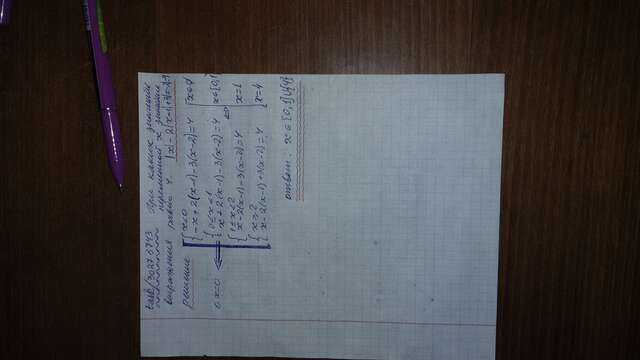 task/30273743 При каких значениях
переменной x значение
выражения равно 4 |x| - 2|x-1|+3|x-2|=4
решение
x<0
-x+2(x-1)-3(x-2)=4
x∈∅
0≤x<1
x+2(x-1)-3(x-2)=4
x∈[0,1
0x=0
1≤x<2
x-2(x-1)-3(x-2)=4
x=1
x≥2
x-2(x-1)+3(x-2)=4
x=4
ответ: x∈[0,1]∪{4}